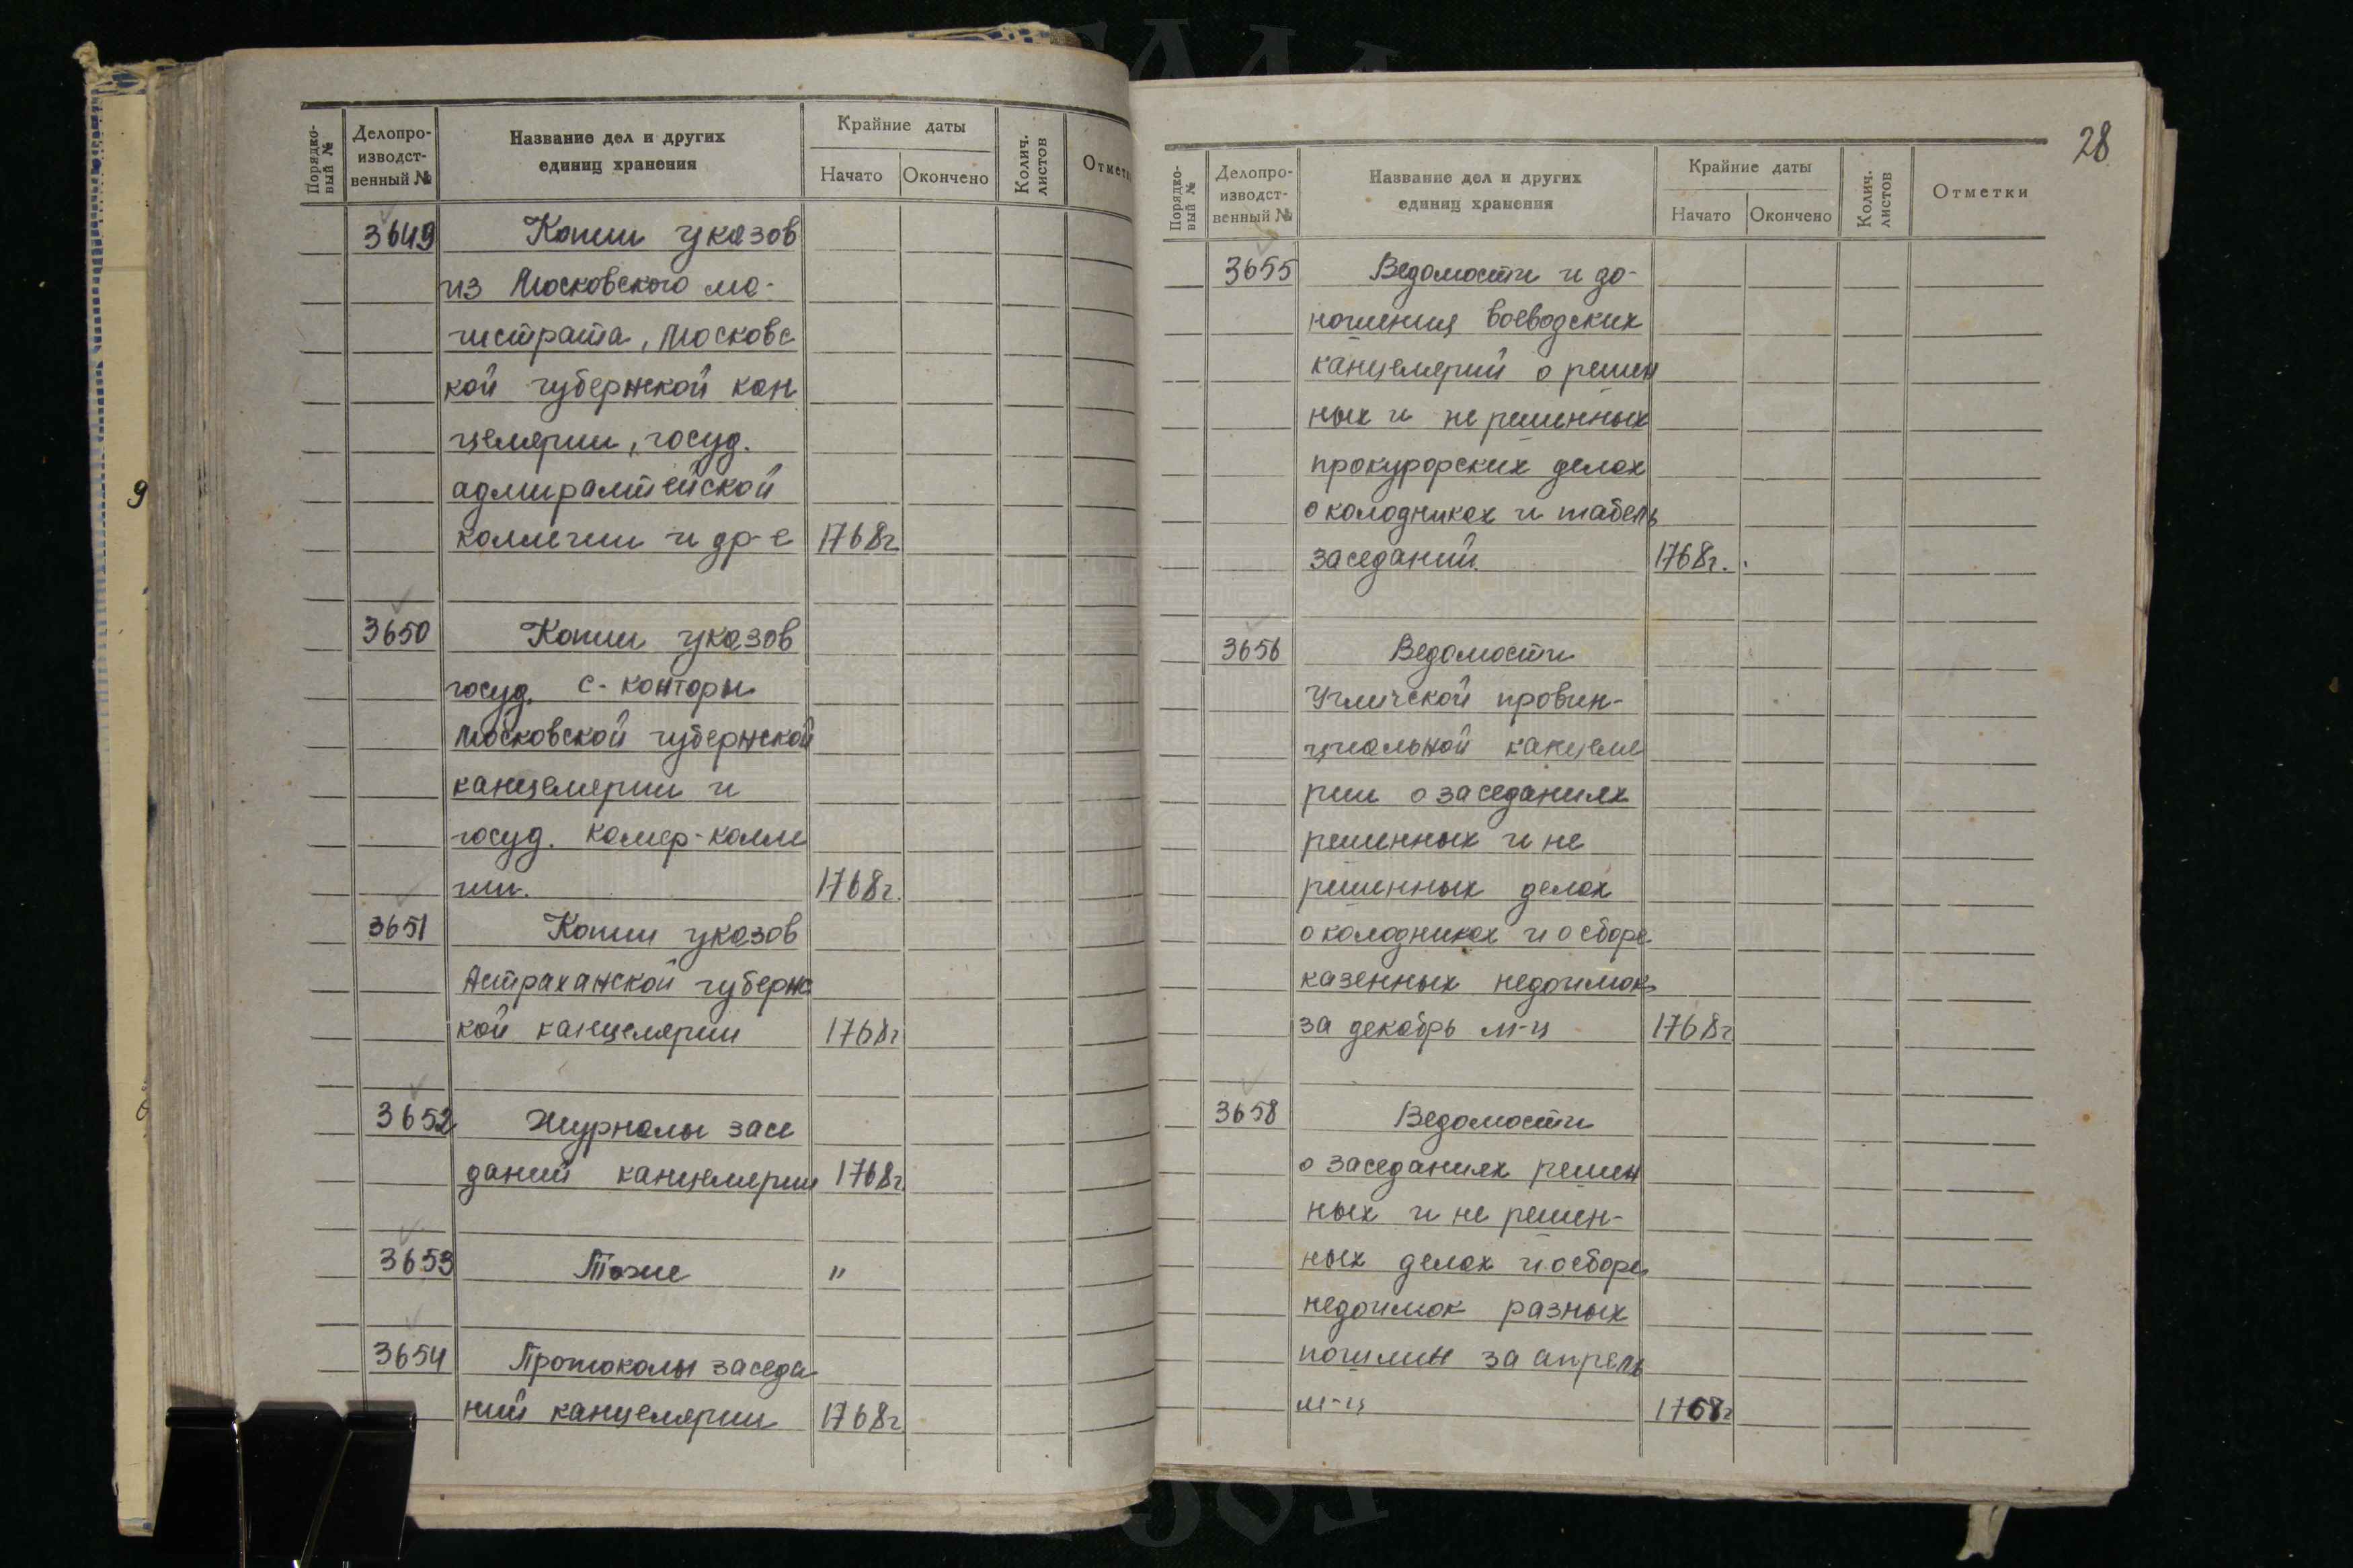 Порядко-
вый №
Делопро-
изводст-
венный №
Название дел и других
единиц хранения
Крайние даты
Начато
Окончено
Колич.
листов
Отметк
3649 Копии указов
из Московского ма-
гистрата, Московс
кой губернской кан
целярии, госуд.
адмиралтейской
коллегии и др-е 1768г
3650 Копии указов
госуд. с-конторы
Московской губернской
канцелярии и
госуд. камер-колле
гии. 1768г.
3651 Копии указов
Астраханской губернс
кой канцелярии 1768г
3652 Журналы засе
даний канцелярии 1768г
3653 Тоже "
3654 Протоколы заседа
ний канцелярии 1768г
9
28
Порядко-
вый №
Делопро-
изводст-
венный №
Название дел и других
единиц хранения
Крайние даты
Начато
Окончено
Колич.
листов
Отметки
3655 Ведомости и до-
ношения воеводских
канцелярий о решен
ных и не решенных
прокурорских делах
о колодниках и табель
заседаний. 1768г.
3656 Ведомости
Угличской провин-
циальной канцеля
рии о заседаниях
решенных и не
решенных делах
о колодниках и о сборе
казенных недоимок
за декабрь м-ц 1768г
3658 Ведомости
о заседаниях решен
ных и не решен-
ных делах и о сборе
недоимок разных
пошлин за апрель
м-ц 1768г